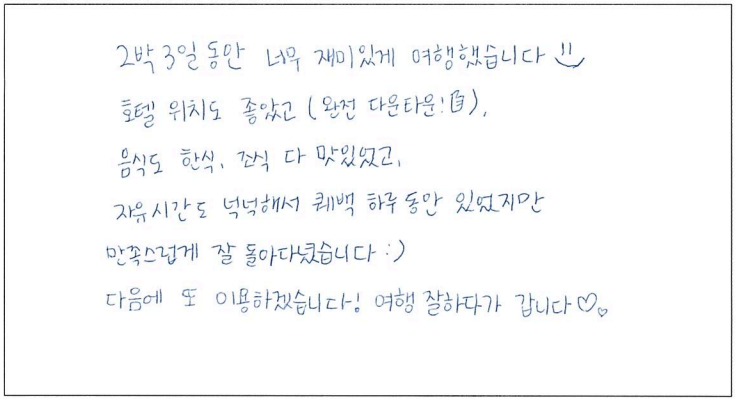 2박 3일 동안 너무 재미있게 여행했습니다
호텔 위치도 좋았고 (완전 다운타운!),
음식도 한식, 조식 다 맛있었고,
자유시간도 넉넉해서 퀘백 하루 동안 있었지만
만족스럽게 잘 돌아다녔습니다 :)
다음에 또 이용하겠습니다~! 여행 잘하다가 갑니다♡♡